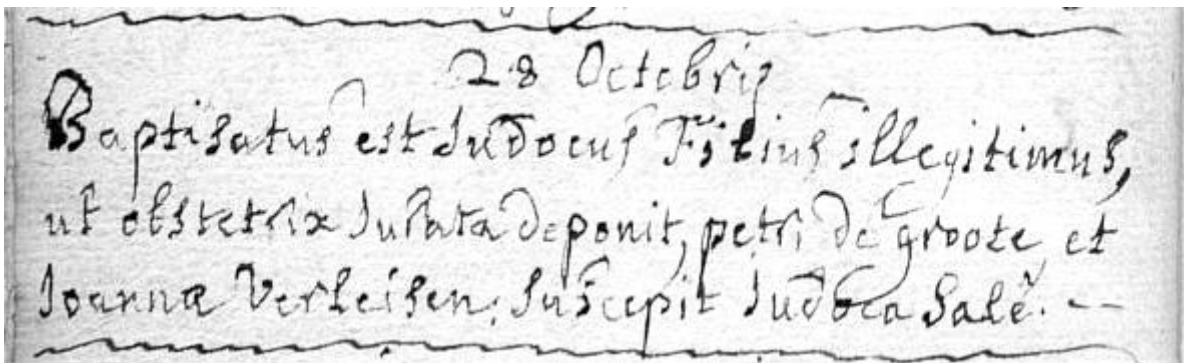 28 Octobris
Baptisatus est Judocus Filius illegitimus,
ut obstetrix Jurata deponit, petri de groote, et
Joannæ Verleisen: Suscepit Judoca Salē. --